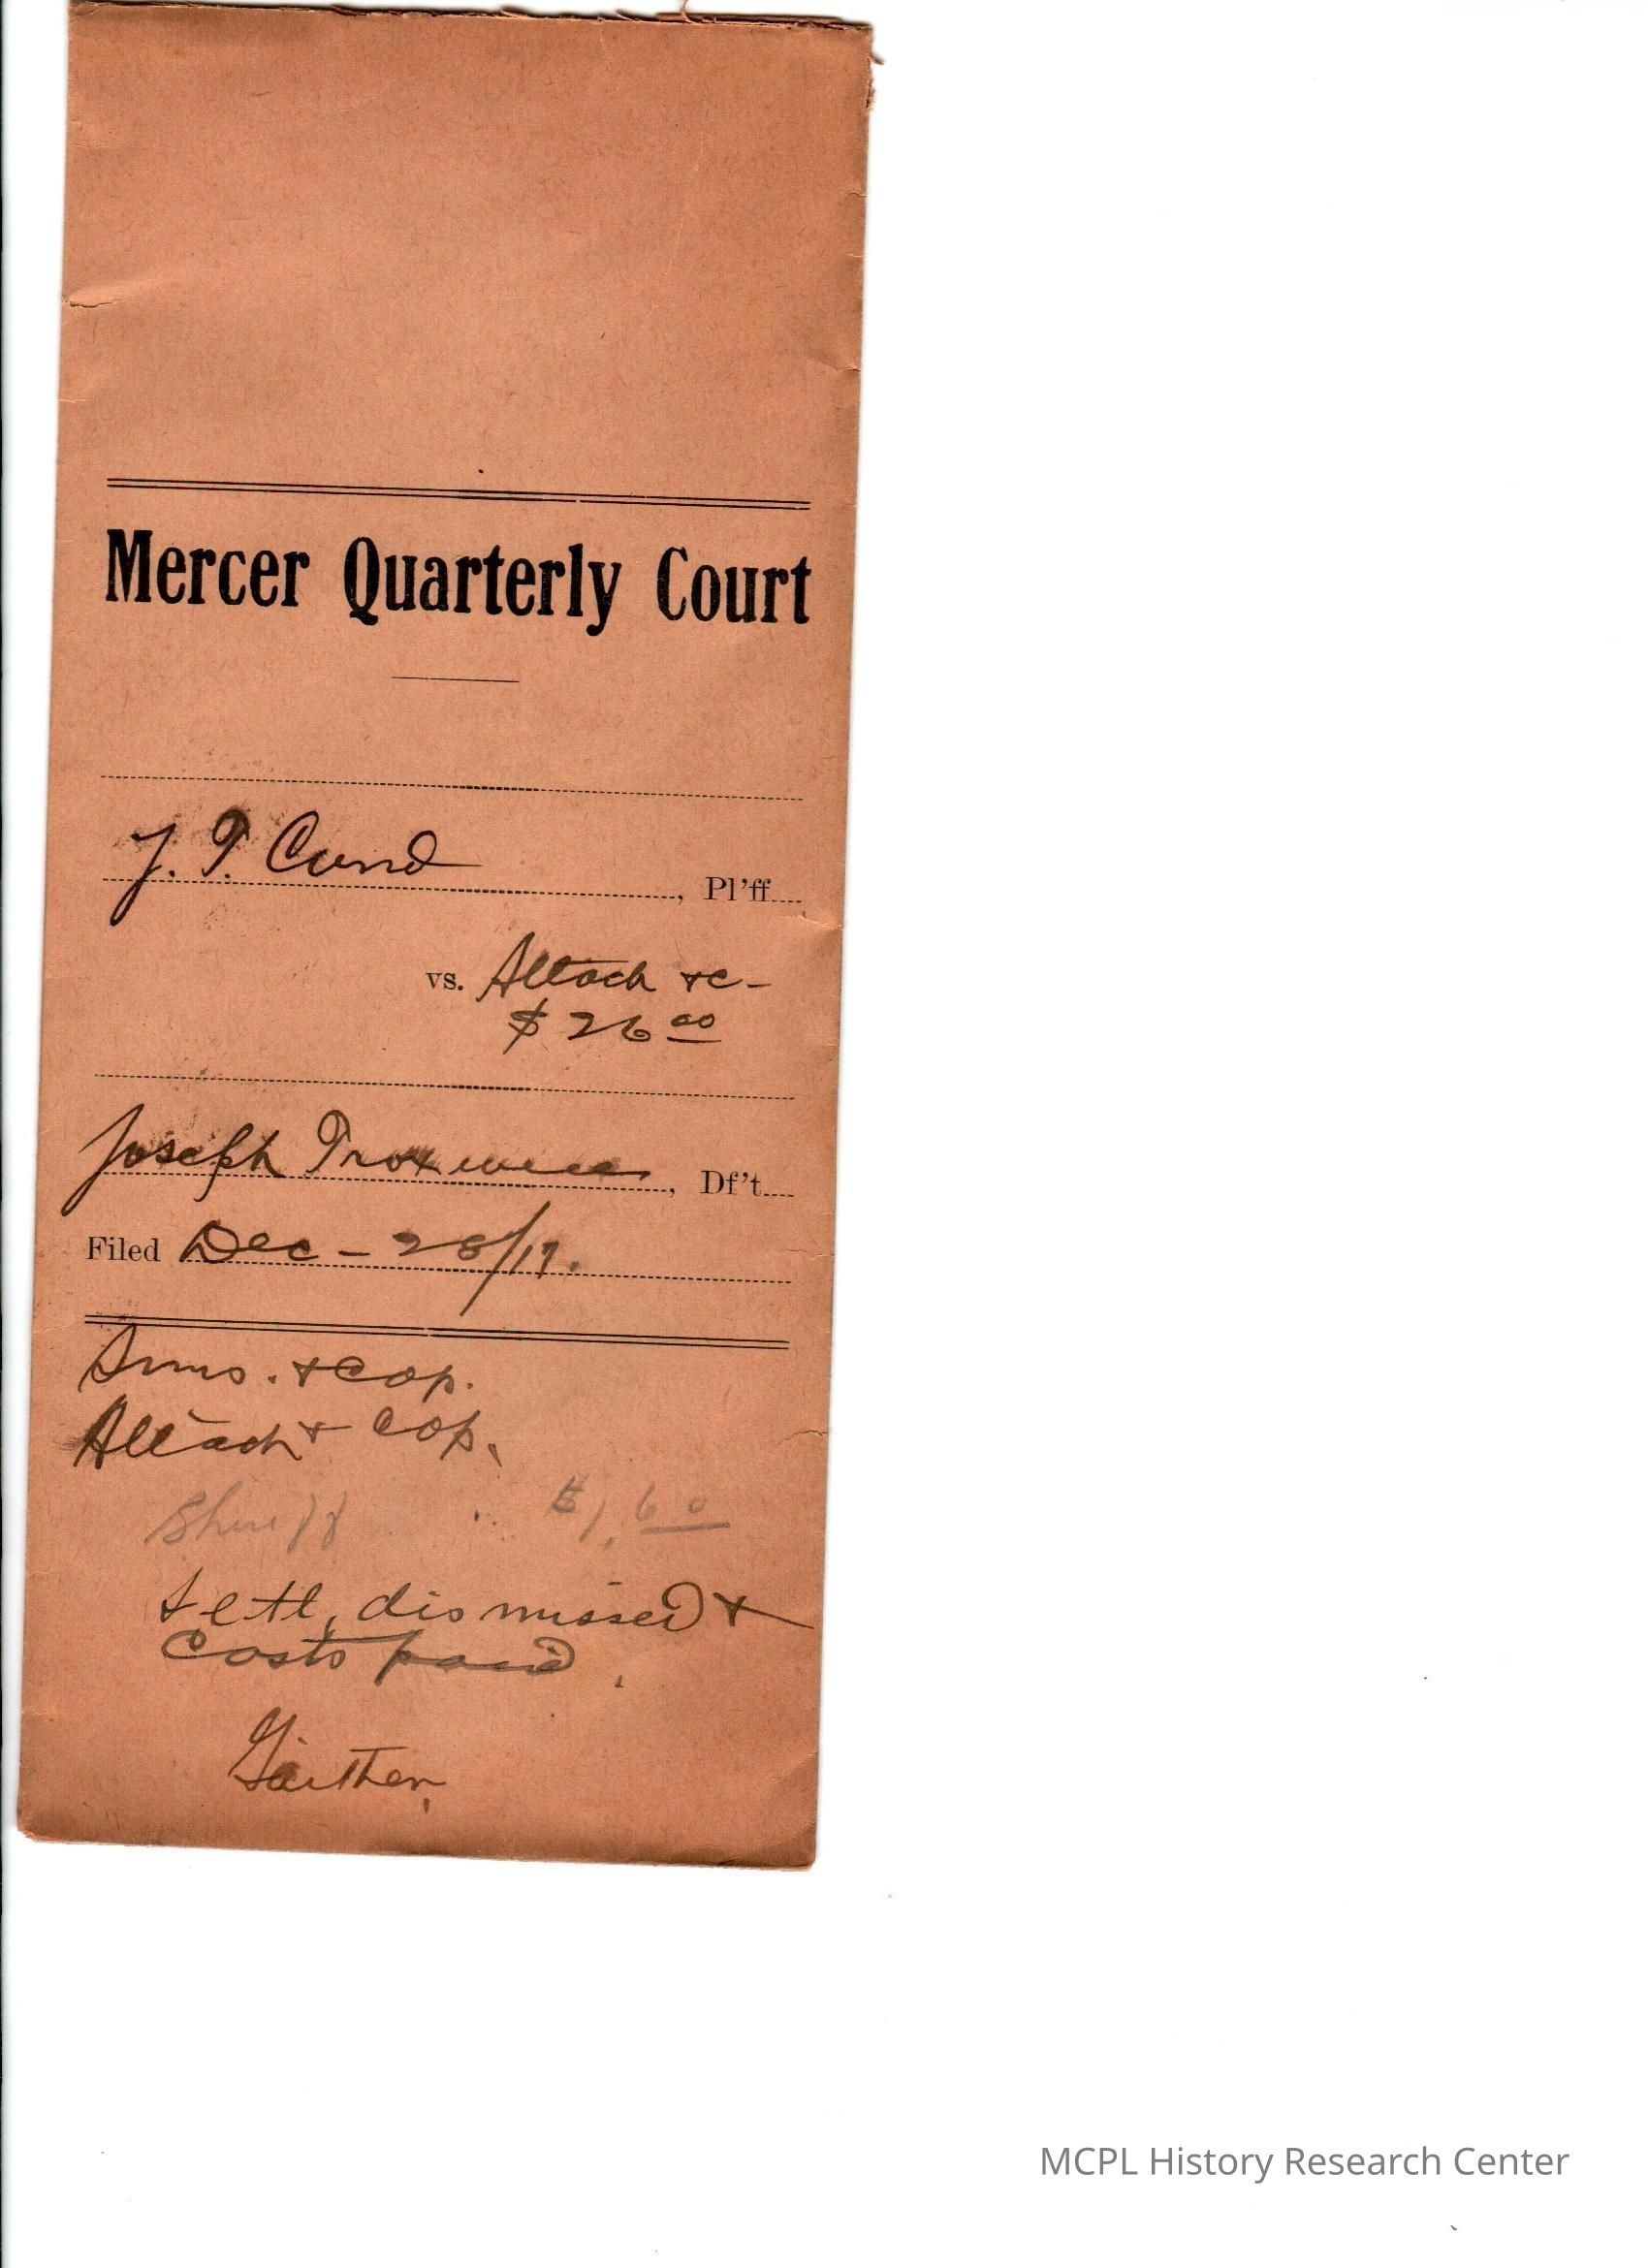 Mercer Quarterly Court
J. T. Curd, Pl'ff
vs. Attach &c-
$26 00
Joseph, Df't
Filed Dec - 28/17.
Sums. & Cop.
Attach & Cop.
Sheriff $1.60
Settl, dismissed &
Costs paid.
Gaither,
MCPL History Research Center